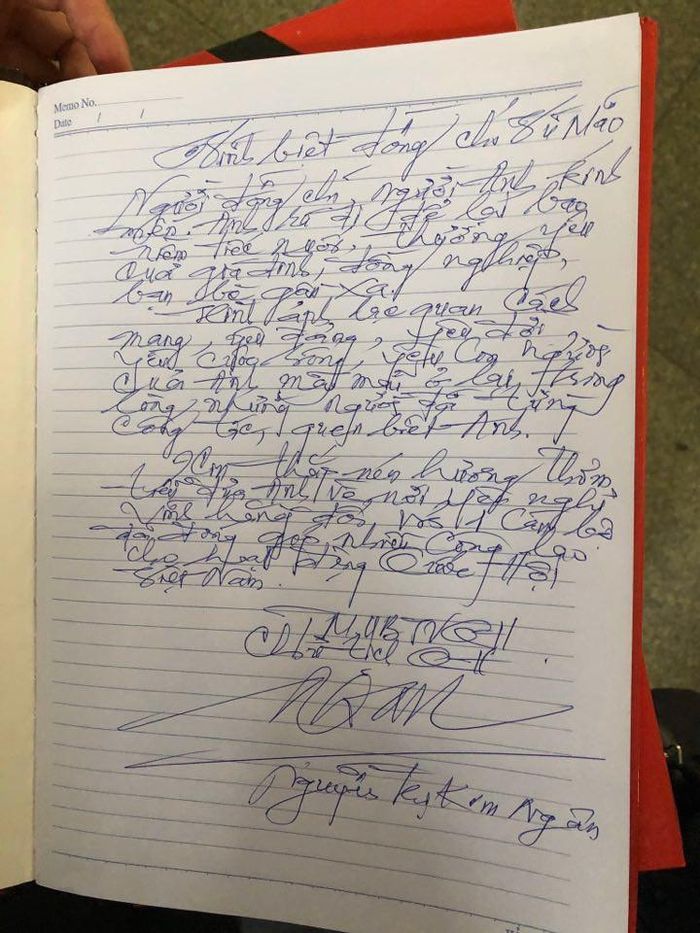 Memo No.
Date / /
Vĩnh biệt đồng chí Vũ Mão
Người đồng chí, người Anh kính
mến. Anh ra đi để lại bao
niềm tiếc nuối, thương yêu
của gia đình, đồng nghiệp,
bạn bè gần xa.
Hình ảnh lạc quan Cách
mạng, yêu Đảng, yêu đời,
yêu cuộc sống, yêu con người
của Anh mãi mãi ở lại trong
lòng những người đã từng
công tác, quen biết Anh.
Xin thắp nén hương thơm
tiễn đưa Anh về nơi yên nghỉ
Vĩnh hằng đối với 1 cán bộ
đã đóng góp nhiều công lao
cho hoạt động Quốc Hội
Việt Nam.
TM UBTVQH
Chủ tịch QH
Ngân
Nguyễn Thị Kim Ngân